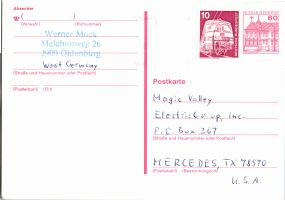 Absender
(Vorwahl) (Rufnummer)
Werner Mock
Melchiorweg 26
2900 Oldenburg
West Germany
(Straße und Hausnummer oder Postfach)
(Postleitzahl) (Ort)
10
60
Postkarte
Magic Valley
Electric Co-op, Inc.
P.O. Box 267
(Straße und Hausnummer oder Postfach)
MERCEDES, TX 78570
(Postleitzahl) (Bestimmungsort)
U.S.A.